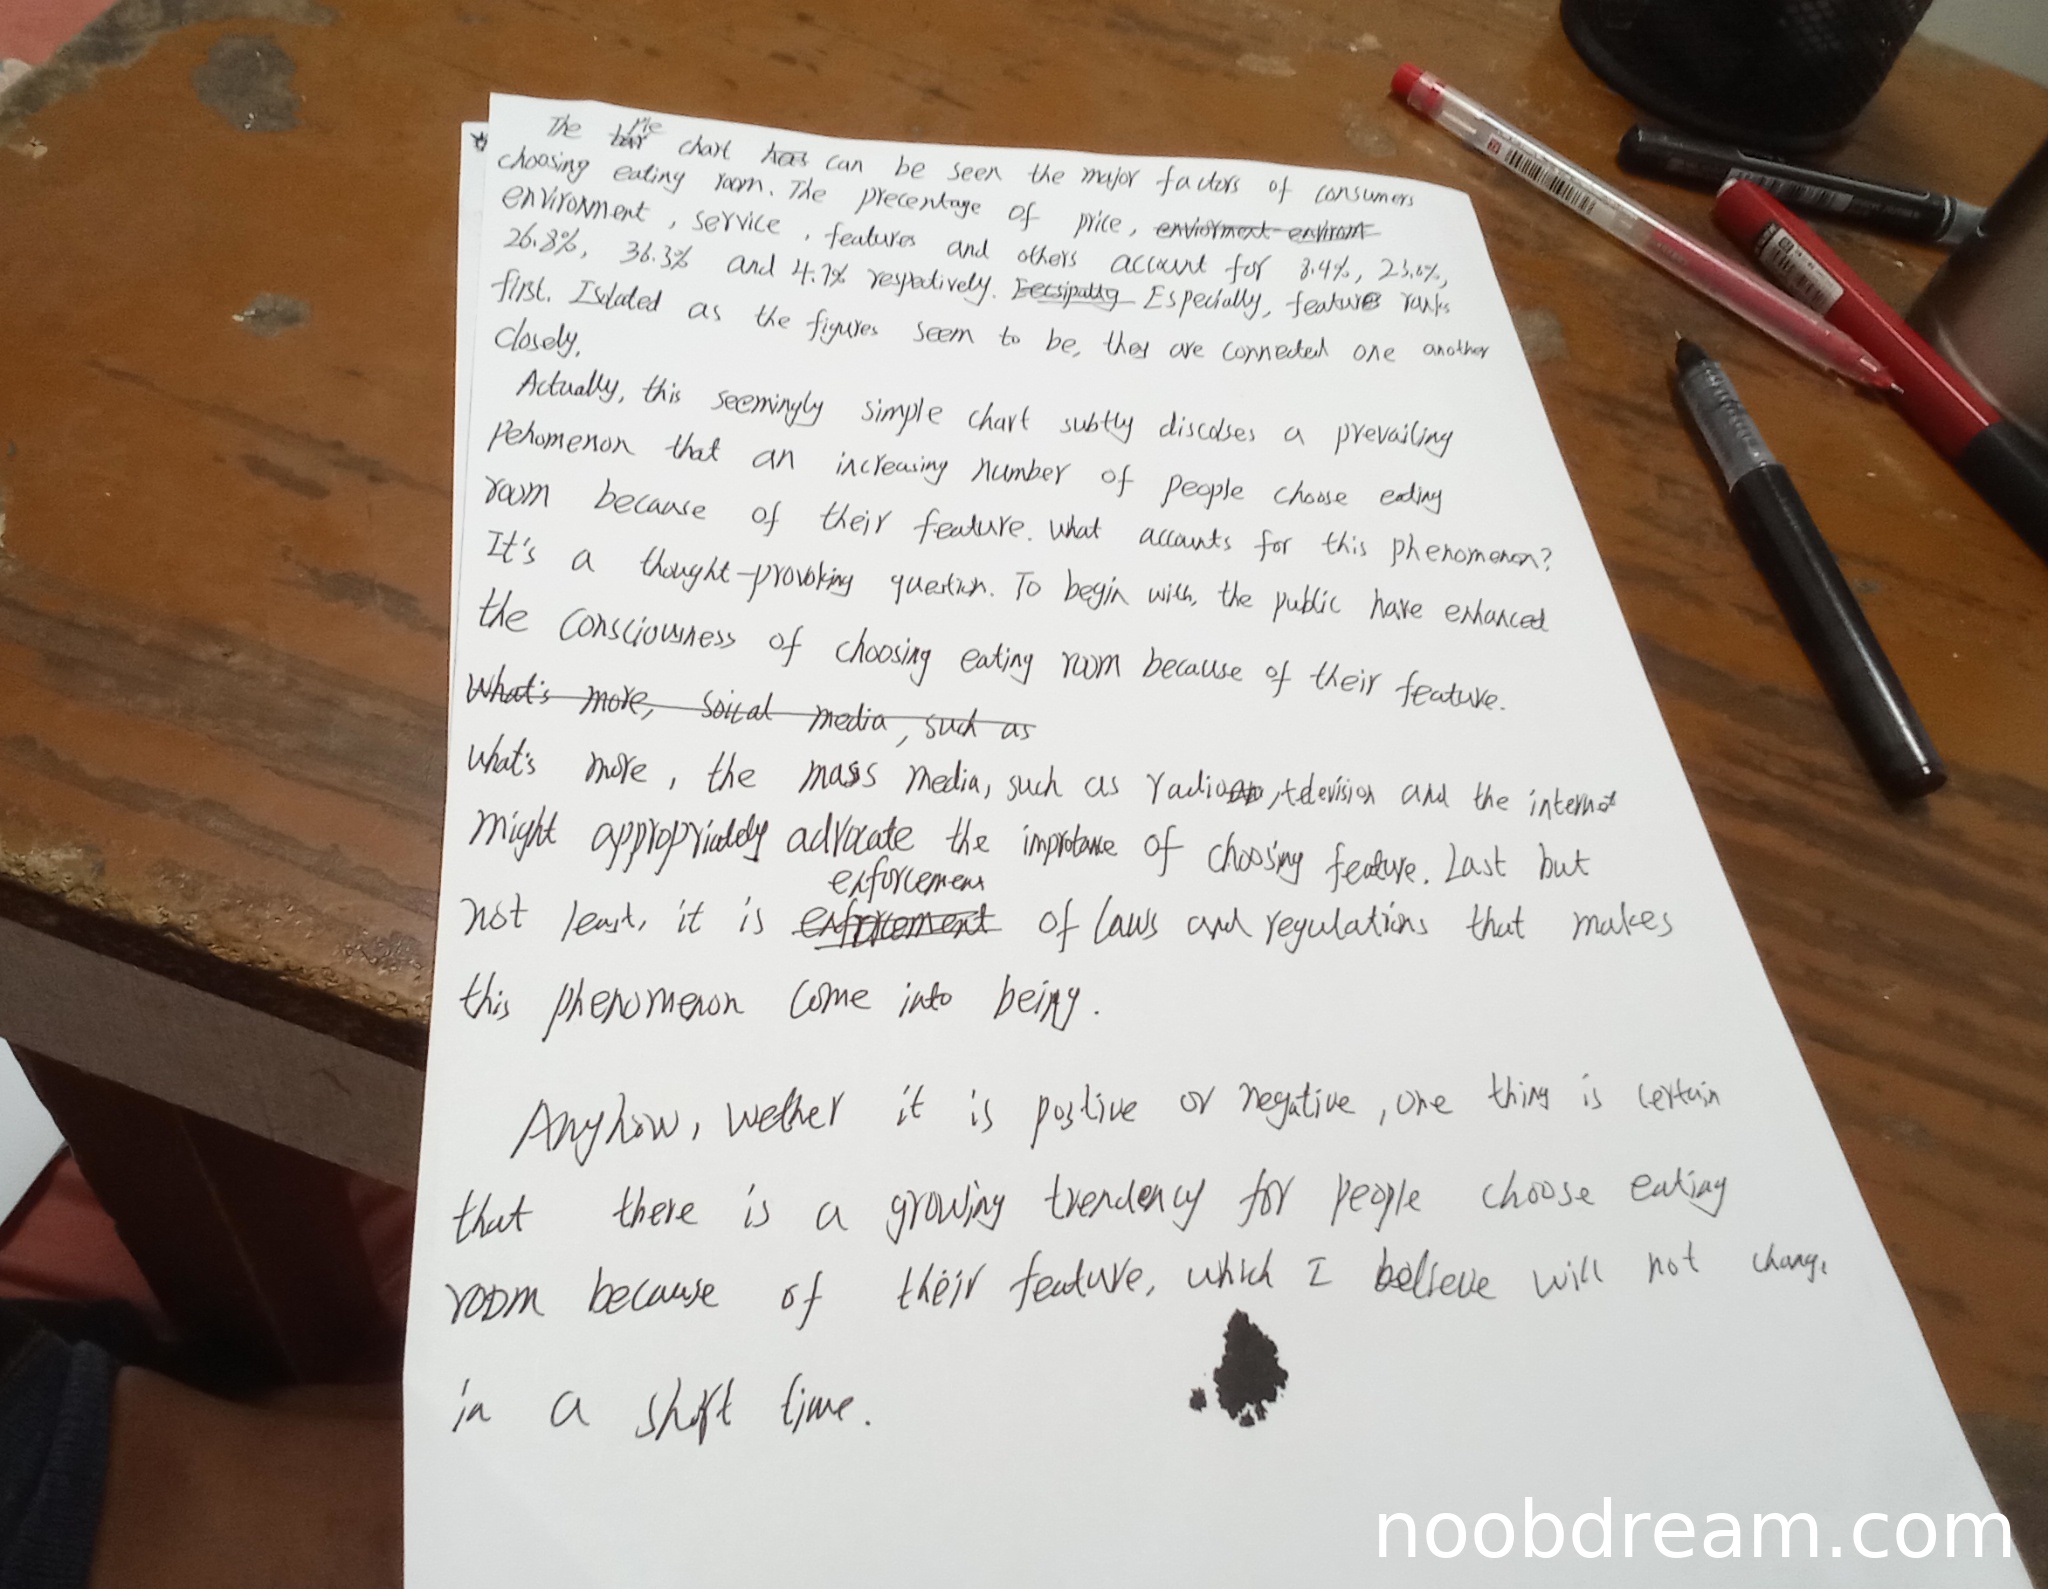 The pie chart can be seen the major factors of consumers
choosing eating room. The precentage of price,
environment, service, features and others account for 8.4%, 23.6%,
26.8%, 36.3% and 4.7% respectively. Especially, features ranks
first. Isolated as the figures seem to be, they are connected one another
closely.
Actually, this seemingly simple chart subtly discolses a prevailing
pehomenon that an increasing number of people choose eating
room because of their feature. What accounts for this phenomenon?
It's a thought-provoking question. To begin with, the public have enhanced
the consciousness of choosing eating room because of their feature.
What's more, soical media, such as
what's more, the mass media, such as radio, television and the internet
might appropriately advocate the improtance of choosing feature. Last but
enforcement
not least, it is enforcement of laws and regulations that makes
this phenomenon come into being.
Anyhow, wether it is postive or negative, one thing is certain
that there is a growing trendency for people choose eating
room because of their feature, which I believe will not change
in a short time.
noobdream.com